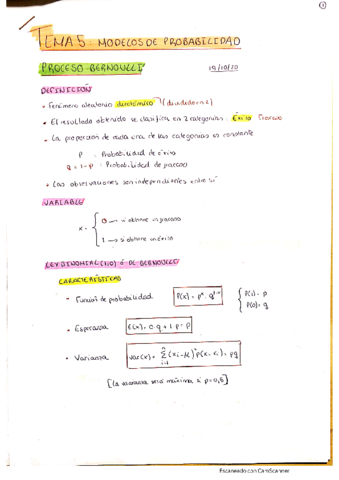 TEMA 5: MODELOS DE PROBABILIDAD
PROCESO BERNOULLI 19/10/20
DEFINICIÓN
• Fenómeno aleatorio dicotómico (dividido en 2)
• El resultado obtenido se clasifica en 2 categorías: Éxito Fracaso
• La proporción de cada una de las categorías es constante
P : Probabilidad de éxito
q = 1-p : Probabilidad de fracaso
• Las observaciones son independientes entre sí
VARIABLE
x = { 0 → si obtiene un fracaso
1 → si obtiene un éxito
LEY BINOMIAL (1,p) ó DE BERNOULLI
CARACTERÍSTICAS
• Función de probabilidad P(x) = pˣ · q¹⁻ˣ { P(1) = p
P(0) = q
• Esperanza E(x) = 0·q + 1·p = p
• Varianza Var(x) = Σ (xi - μ)² p(x = xi) = pq
[La varianza será máxima si p = 0,5]
Escaneado con CamScanner